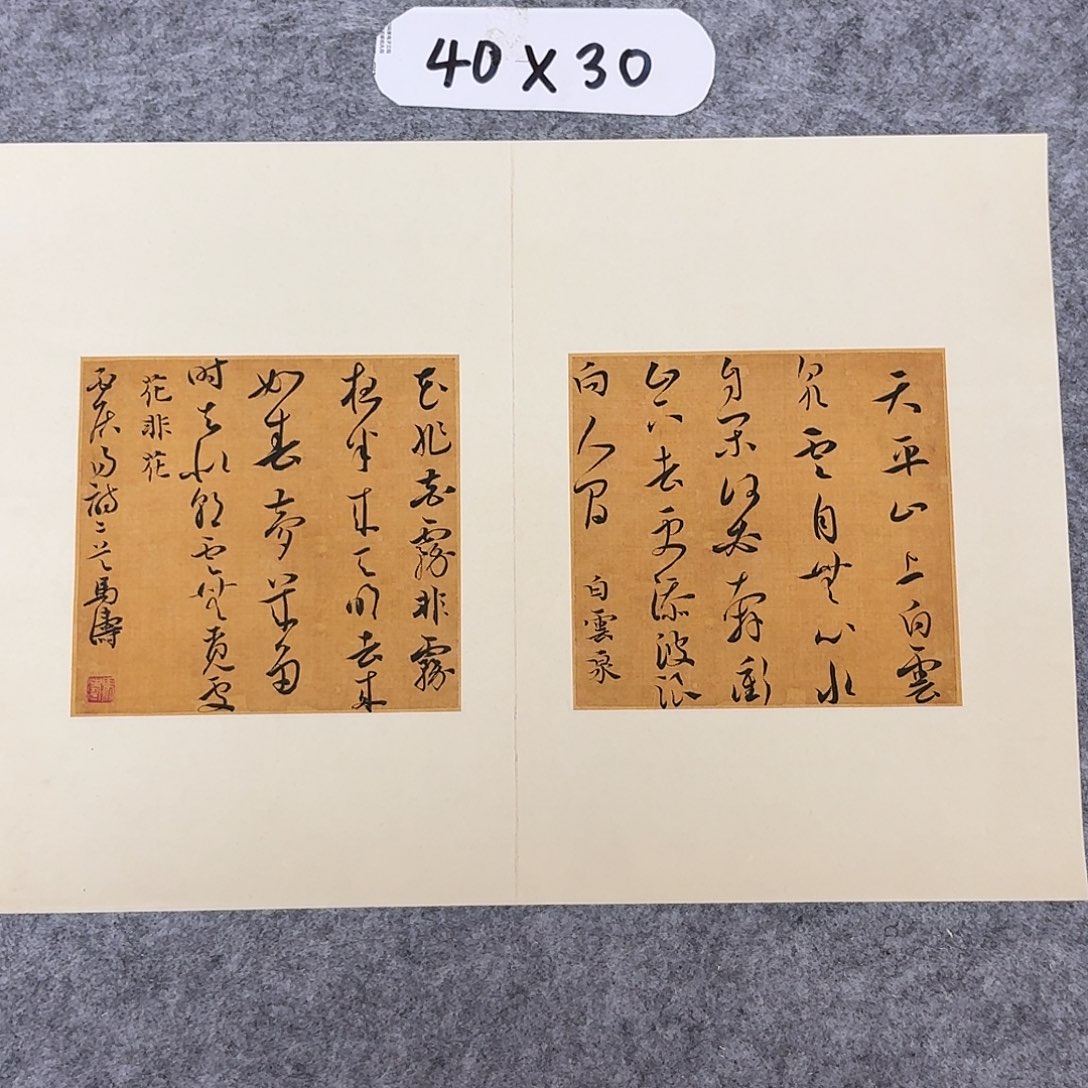 40X30
天平山上白雲
泉雲自無心水
自閑何必奔衝
山下去更添波浪
向人間 白雲泉
花非花霧非霧
夜半來天明去來
如春夢幾多
时去似朝雲無覓處
花非花
居易詩二首馬濤